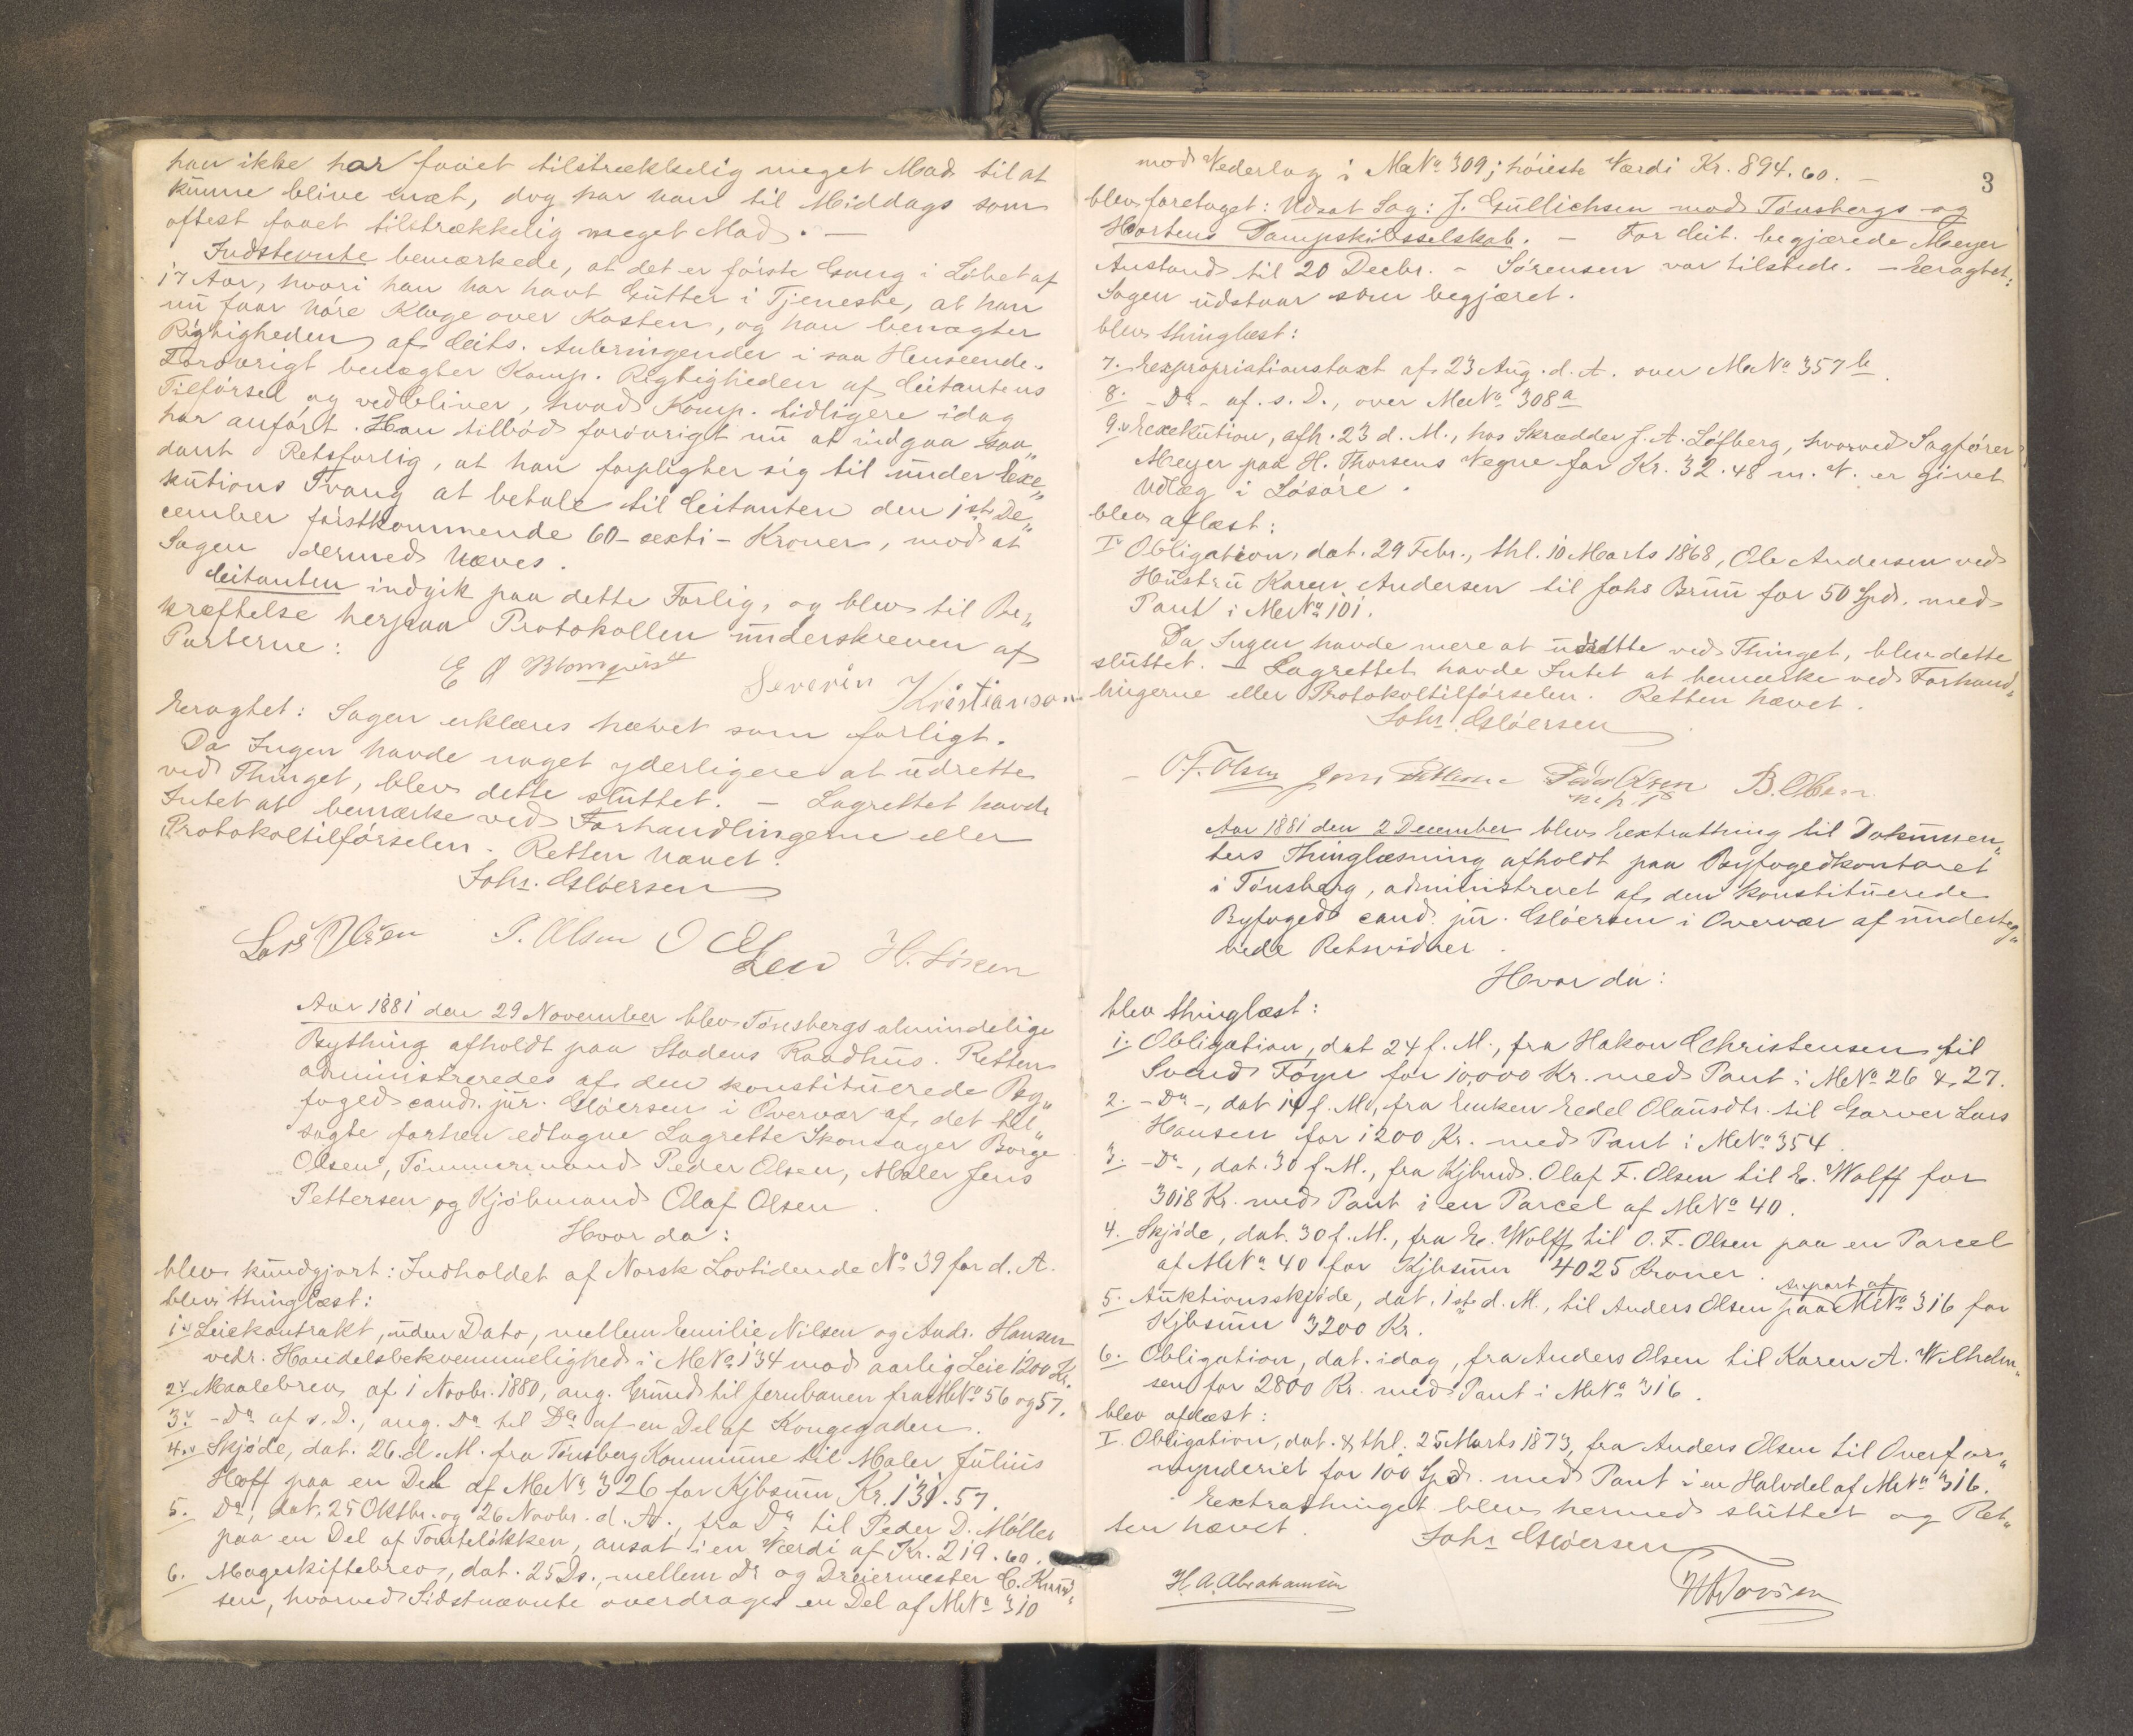 han ikke har faaet tilstrækkelig meget Mad til at
kunne blive mæt, dog har han til Middags som
oftest faaet tilstrækkelig meget Mad. —
Indstevnte bemærkede, at det er første Gang i Løbet af
17 Aar, hvori han har havt Gutter i Tjeneste, at han
nu faar høre Klage over Kosten, og han benægter
Rigtigheden af Citts. Anbringender i saa Henseende.
Forøvrigt benægter Komp. Rigtigheden af Citantens
Tilførsel og vedbliver, hvad Komp. tidligere idag
har anført. Han tilbød forøvrigt nu at indgaa saa„
dant Retsforlig, at han forpligter sig til under Exe„
kutions Tvang at betale til Citanten den 1ste De„
cember førstkommende 60 - sexti - Kroner, mod at
Sagen dermed hæves.
Citanten indgik paa dette Forlig, og blev til Be„
kræftelse herpaa Protokollen underskreven af
Parterne:
E Ø Blomquist
Severin Kristianson
Eragtet: Sagen erklæres hævet som forligt.
Da Ingen havde noget yderligere at udrette
ved Thinget, blev dette sluttet. — Lagrettet havde
Intet at bemærke ved Forhandlingerne eller
Protokoltilførselen. Retten hævet.
Johs. Gløersen
Lars Olsen P. Olsen O Olsen H. Larsen
Aar 1881 den 29 November blev Tønsbergs almindelige
Bything afholdt paa Stadens Raadhus. Retten
administreredes af den konstituerede By„
foged cand. jur. Gløersen i Overvær af det til„
sagte forhen edtagne Lagrette Skomager Børge
Olsen, Tømmermand Peder Olsen, Maler Jens
Pettersen og Kjøbmand Olaf Olsen.
Hvor da:
blev kundgjort: Indholdet af Norsk Lovtidende No 39 for d. A.
blev thinglæst:
1. Leiekontrakt, uden Dato, mellem Emilie Nilsen og Andr. Hansen
vedr. Handelsbekvemmelighed i MNo 134 mod aarlig Leie 1200 Kr.
2. Maalebrev af 1 Novbr. 1880, ang. Grund til Jernbanen fra MNo 56 og 57.
3. - Do af s. D., ang. Do til Do af en Del af Kongegaden.
4. Skjøde, dat. 26 d. M. fra Tønsberg Kommune til Maler Julius
Hoff paa en Del af MNo 326 for Kjbsum Kr. 131.57.
5. Do, dat. 25 Oktbr. og 26 Novbr. d. A. fra Do til Peder D. Møller
paa en Del af Tomteløkken, ansat i en Værdi af Kr. 219.60.
6. Mageskiftebrev, dat. 25 Ds., mellem Do og Dreiermester C. Knud„
sen, hvorved Sidstnævnte overdrages en Del af MNo 310
3
mod Vederlag i MNo 309; høieste Værdi Kr. 894.60. —
blev foretaget: Udsat Sag: J. Gullichsen mod Tønsbergs og
Hortens Dampskibsselskab. — For Citt. begjærede Meyer
Anstand til 20 Decbr. - Sørensen var tilstede. - Eragtet:
Sagen udstaar som begjæret.
blev thinglæst:
7. Expropriationstaxt af 23 Aug. d. A. over MNo 357 b.
8. - Do - af s. D., over MNo 308 a
9. Exekution, afh. 23 d. M., hos Skrædder J. A. Löfberg, hvorved Sagfører
Meyer paa H. Thorsens Vegne for Kr. 32.48 m. V. er givet
Udlæg i Løsøre.
blev aflæst:
I. Obligation, dat. 29 Febr., thl. 10 Marts 1868, Ole Andersen ved
Hustru Karen Andersen til Johs Bruu for 50 Spd. med
Pant i MNo 101.
Da Ingen havde mere at udrette ved Thinget, blev dette
sluttet. — Lagrettet havde Intet at bemærke ved Forhand„
lingerne eller Protokoltilførselen. Retten hævet.
Johs. Gløersen
O. F. Olsen Jens Pettersen Peder Olsen B. Olsen
m. p. P.
Aar 1881 den 2 December blev Extrathing til Dokumen„
ters Thinglæsning afholdt paa Byfogedkontoret
i Tønsberg, administreret af den konstituerede
Byfoged cand. jur. Gløersen i Overvær af underteg„
nede Retsvidner.
Hvor da:
blev thinglæst:
1. Obligation, dat 24 f. M., fra Hakon Christensen til
Svend Føyn for 10,000 Kr. med Pant i MNo 26 & 27.
2. - Do -, dat 14 f. M., fra Enken Edel Olausdtr. til Garver Lars
Hansen for 1200 Kr. med Pant i MNo 354.
3. - Do -, dat. 30 f. M., fra Kjbmd. Olaf F. Olsen til E. Wolff for
3018 Kr. med Pant i en Parcel af MNo 40.
4. Skjøde, dat. 30 f. M., fra E. Wolff til O. F. Olsen paa en Parcel
af MNo 40 for Kjbsum 4025 Kroner.
5. Auktionsskjøde, dat. 1ste d. M., til Anders Olsen paa Anpart af MNo 316 for
Kjbsum 3200 Kr.
6. Obligation, dat. idag, fra Anders Olsen til Karen A. Wilhelm„
sen for 2800 Kr. med Pant i MNo 316.
blev aflæst:
I. Obligation, dat. & thl. 25 Marts 1873, fra Anders Olsen til Overfor„
mynderiet for 100 Spd. med Pant i en Halvdel af MNo 316.
Extrathinget blev hermed sluttet og Ret„
ten hævet.
Johs Gløersen
H. A. Abrahamsen